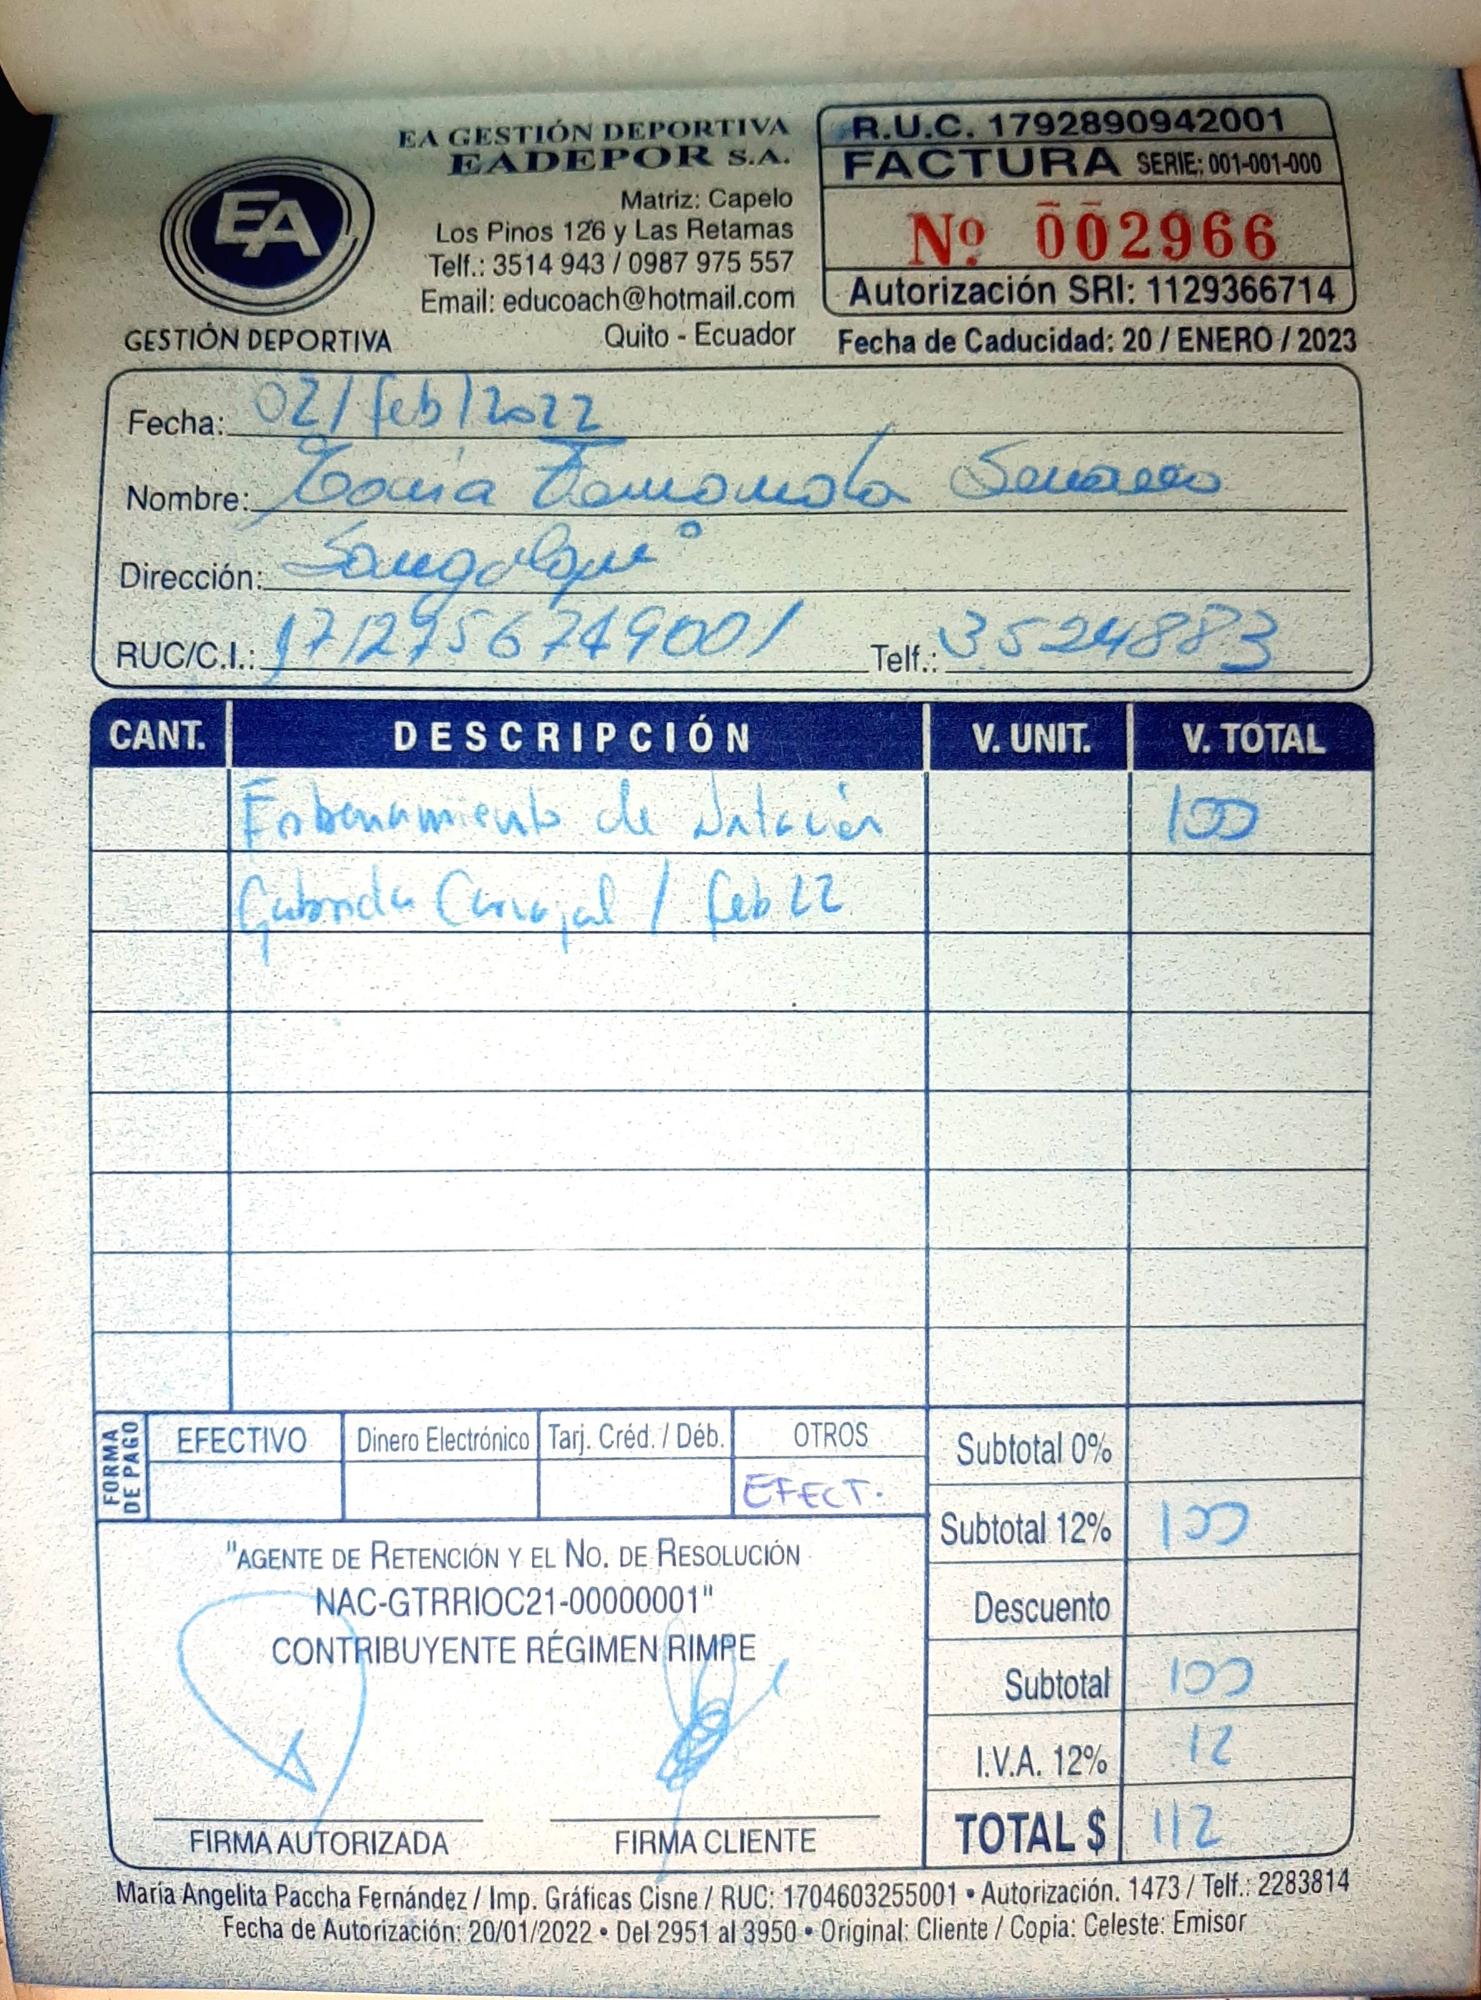 EA GESTIÓN DEPORTIVA
EADEPOR S.A.
Matriz: Capelo
Los Pinos 126 y Las Retamas
Telf.: 3514 943 / 0987 975 557
Email: educoach@hotmail.com
Quito - Ecuador
EA
GESTIÓN DEPORTIVA
R.U.C. 1792890942001
FACTURA SERIE: 001-001-000
Nº 002966
Autorización SRI: 1129366714
Fecha de Caducidad: 20 / ENERO / 2023
Fecha: 02/feb/2022
Nombre:
Dirección: Sangolquí
RUC/C.I.: 1712956749001 Telf.: 3524883
CANT. DESCRIPCIÓN V. UNIT. V. TOTAL
Entrenamiento de Natación 100
Gabriela Carvajal / feb 22
FORMA DE PAGO
EFECTIVO Dinero Electrónico Tarj. Créd. / Déb. OTROS
EFECT.
Subtotal 0%
Subtotal 12% 100
Descuento
Subtotal 100
I.V.A. 12% 12
TOTAL $ 112
"AGENTE DE RETENCIÓN Y EL NO. DE RESOLUCIÓN
NAC-GTRRIOC21-00000001"
CONTRIBUYENTE RÉGIMEN RIMPE
FIRMA AUTORIZADA FIRMA CLIENTE
María Angelita Paccha Fernández / Imp. Gráficas Cisne / RUC: 1704603255001 • Autorización. 1473 / Telf.: 2283814
Fecha de Autorización: 20/01/2022 • Del 2951 al 3950 • Original: Cliente / Copia: Celeste: Emisor